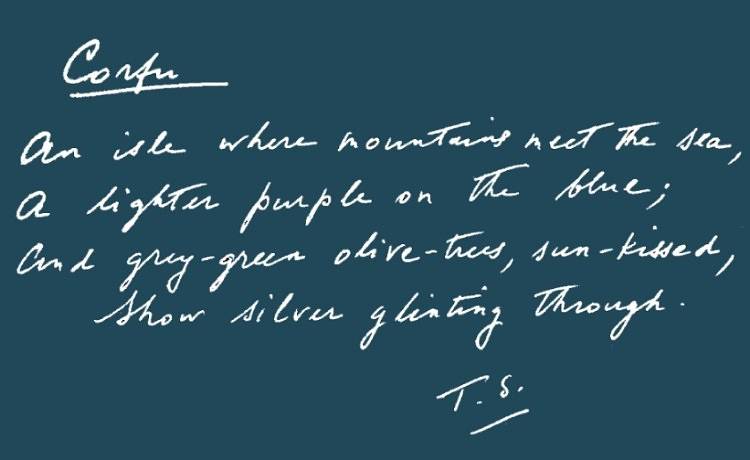 Corfu
An isle where mountains meet the sea,
A lighter purple on the blue;
And grey-green olive-trees, sun-kissed,
Show silver glinting through.
T. S.